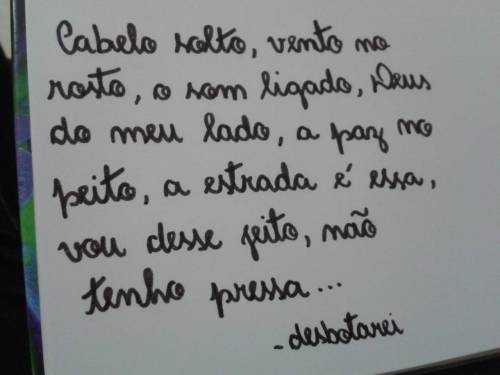 Cabelo solto, vento no
rosto, o som ligado, Deus
do meu lado, a paz no
peito, a estrada é essa,
vou desse jeito, não
tenho pressa...
- desbotarei